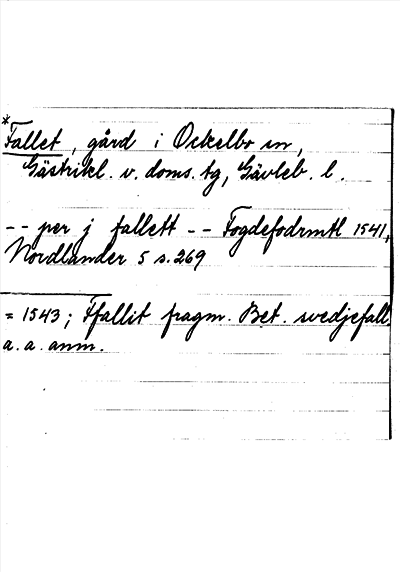 *
Fallet, gård i Ockelbo sn,
Gästrikl. v. doms. tg, Gävleb. l.
-- per j fallett -- Fogdefodrmtl 1541,
Nordlander 5 s. 269
= 1543; Ffallit fragm. Bet. svedjefall
a. a. anm.